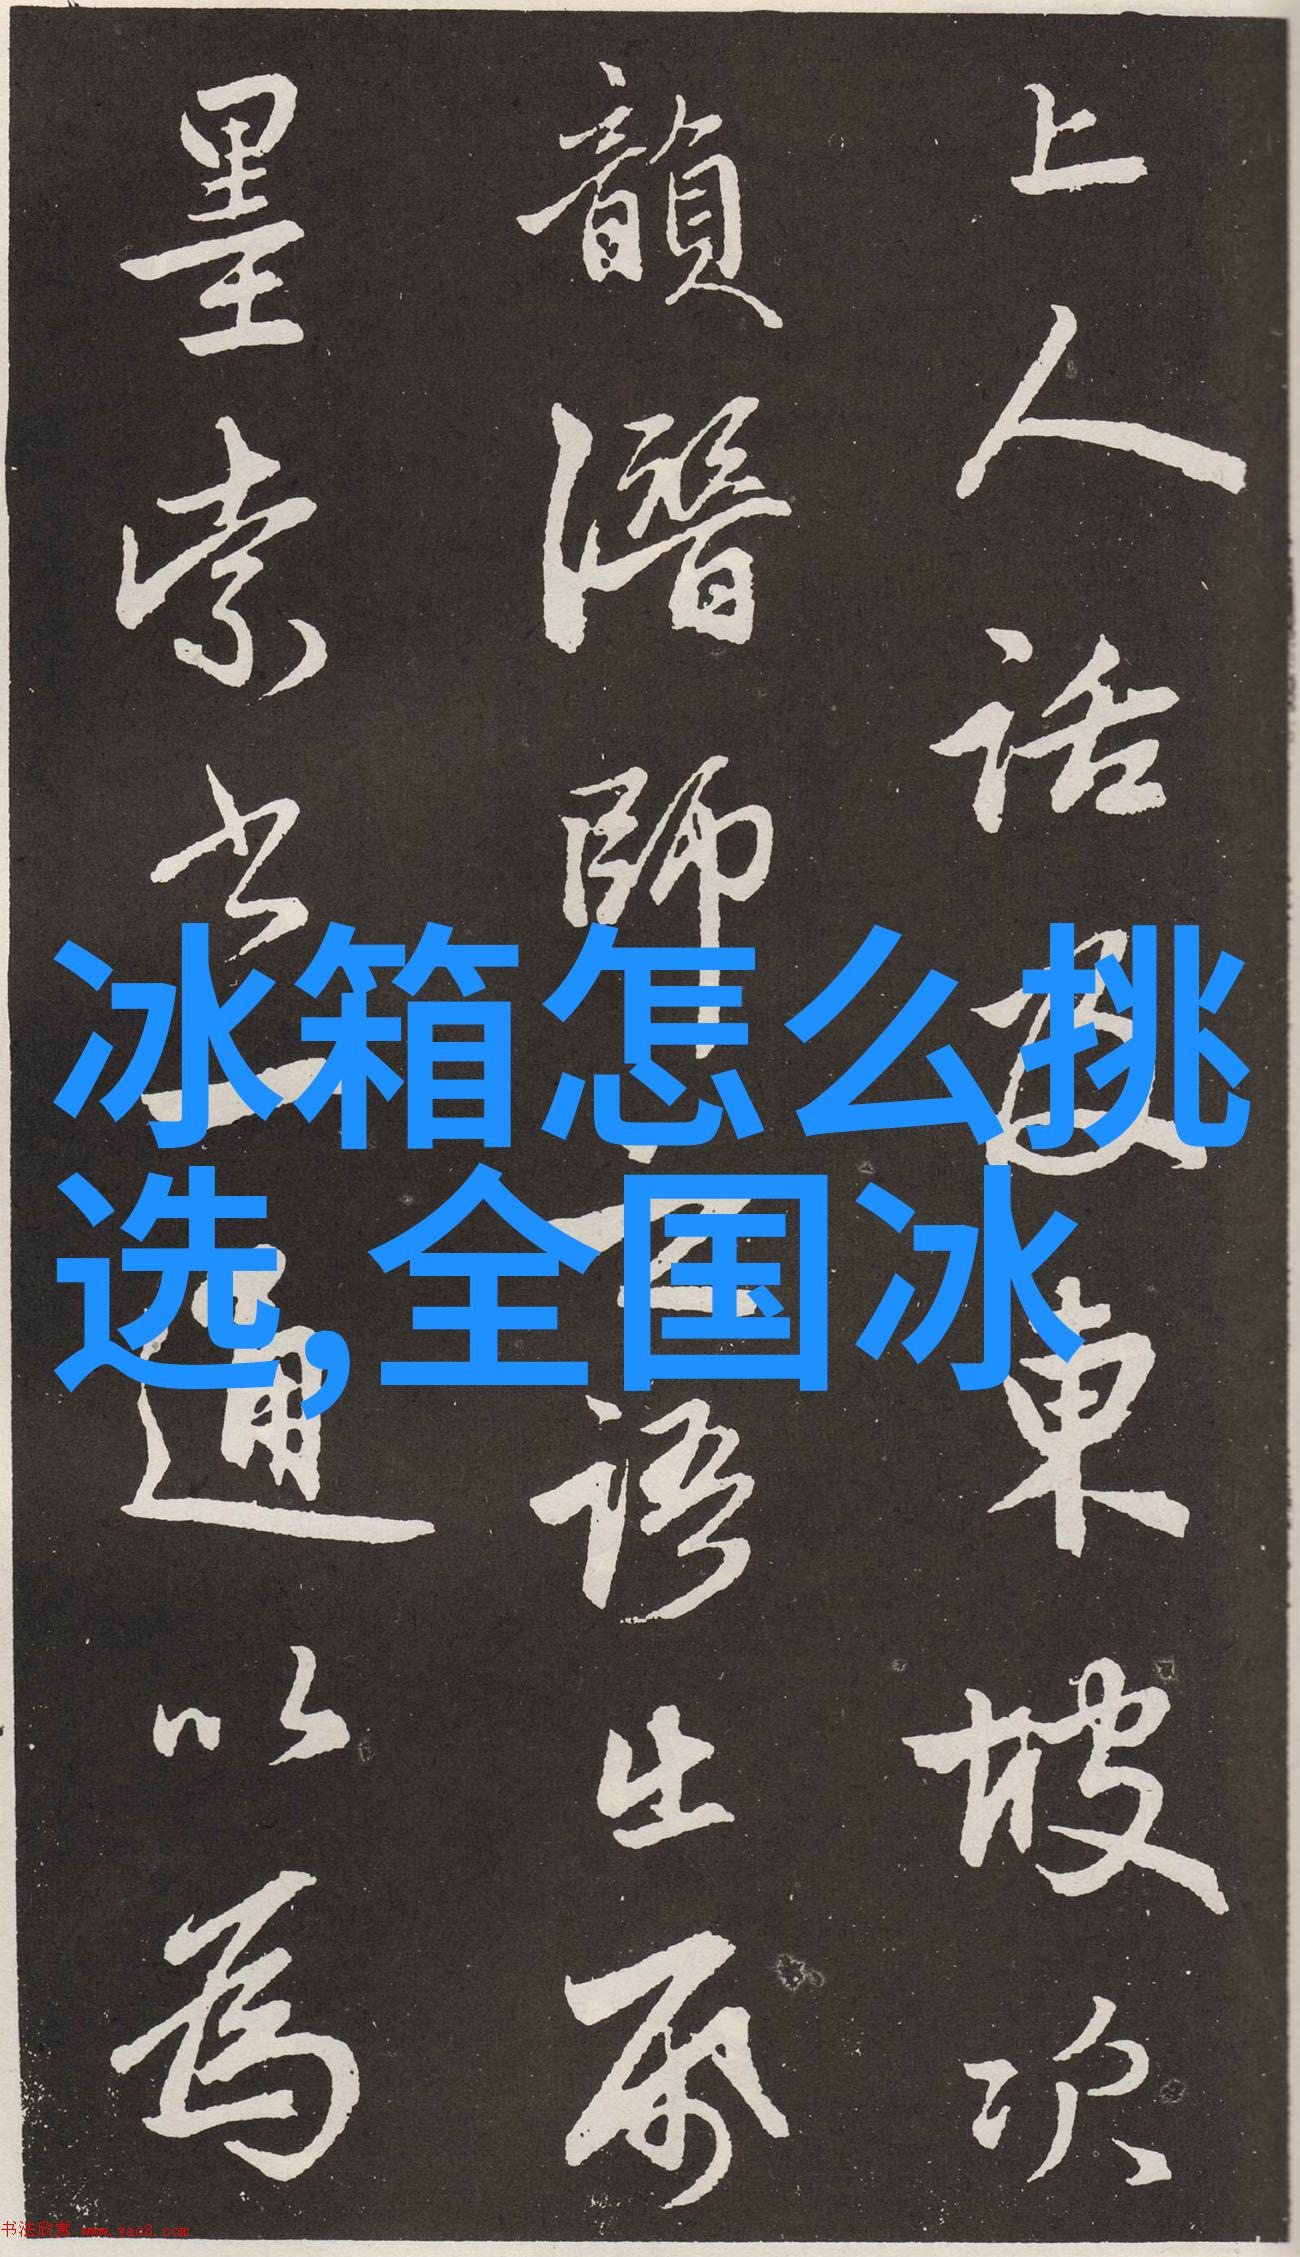 上人話東坡次
韻潛師語出帋
墨索書一通以為
冰箱怎么挑
选,全国冰
书法欣赏 www.yac8.com